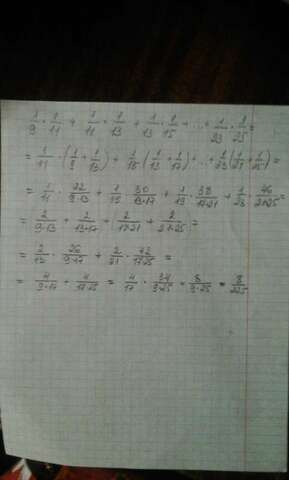 1/9 · 1/11 + 1/11 · 1/13 + 1/13 · 1/15 + ... + 1/23 · 1/25 =
= 1/11 · (1/9 + 1/13) + 1/15 (1/13 + 1/17) + ... + 1/23 (1/21 + 1/25) =
= 1/11 · 22/9·13 + 1/15 · 30/13·17 + 1/19 · 38/17·21 + 1/23 · 46/21·25 =
= 2/9·13 + 2/13·17 + 2/17·21 + 2/21·25 =
= 2/13 · 26/9·17 + 2/21 · 42/17·25 =
= 4/9·17 + 4/17·25 = 4/17 · 34/9·25 = 8/9·25 = 8/225